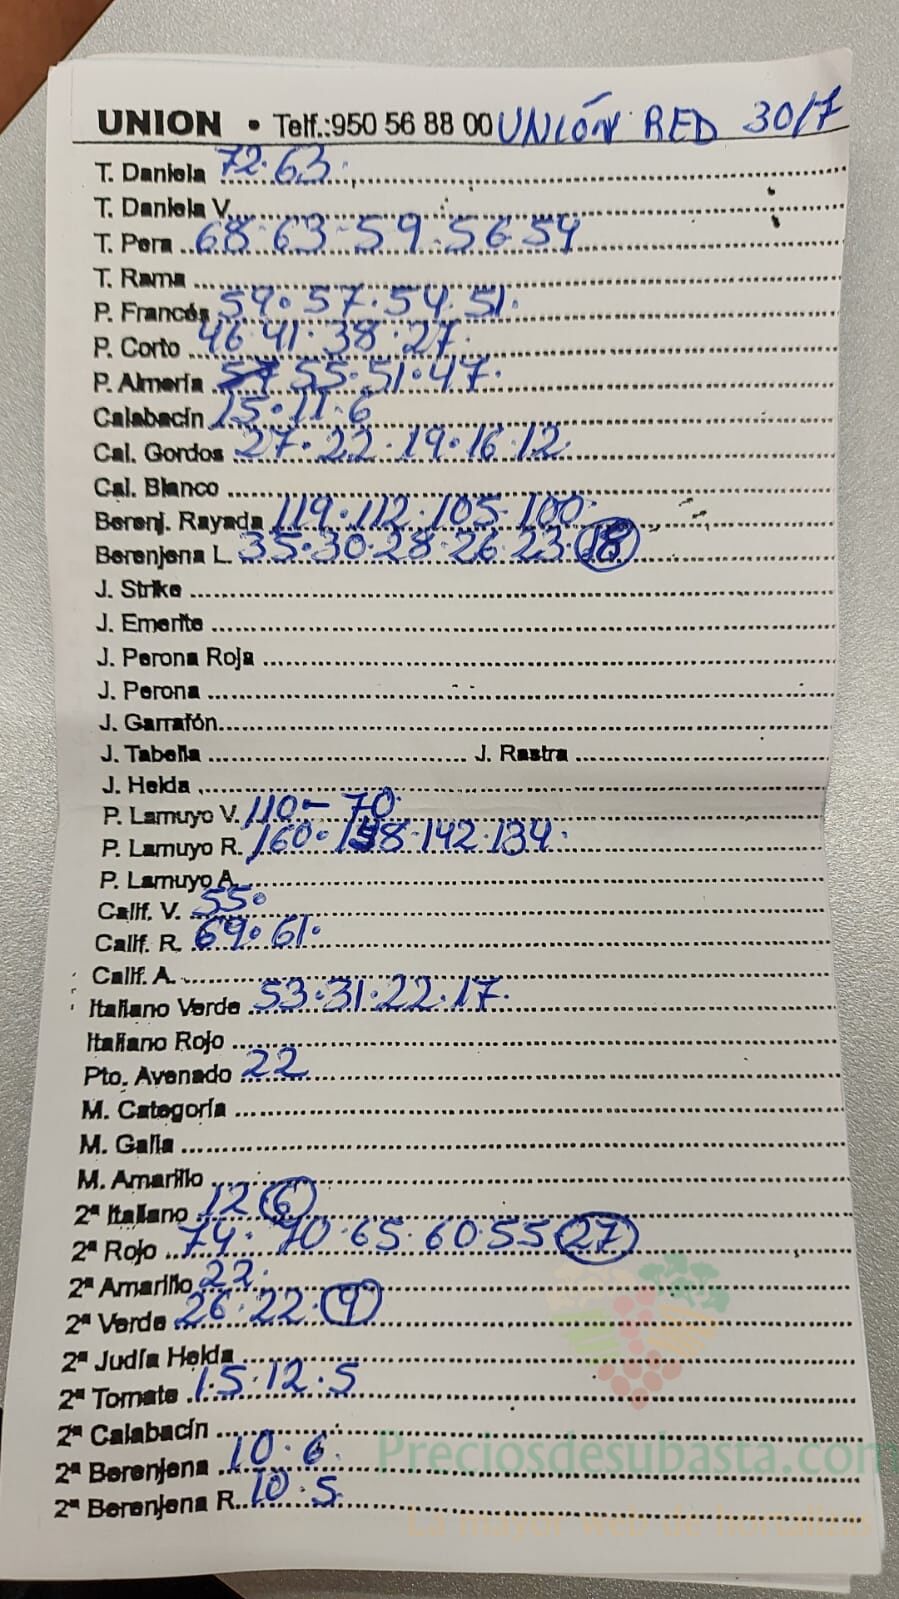 UNION • Telf.:950 56 88 00 UNIÓN RED 30/7
T. Daniela 72.63.
T. Daniela V.
T. Pera 68.63-59.56.54
T. Rama
P. Francés 59.57.54.51.
P. Corto 46.41.38.27.
P. Almería 55.51.47.
Calabacín 15.11.6
Cal. Gordos 27.22.19.16.12
Cal. Blanco
Berenj. Rayada 119.112.105-100.
Berenjena L. 35.30.28.26.23.18
J. Strike
J. Emerite
J. Perona Roja
J. Perona
J. Garrafón
J. Tabella J. Rastra
J. Helda
P. Lamuyo V. 110-70.
P. Lamuyo R. 160.158.142.134.
P. Lamuyo A.
Calif. V. 55.
Calif. R. 69.61.
Calif. A.
Italiano Verde 53.31.22.17.
Italiano Rojo
Pto. Avenado 22
M. Categoría
M. Galia
M. Amarillo
2ª Italiano 12 6
2ª Rojo 74.70.65.60.55 27
2ª Amarillo 22.
2ª Verde 26.22. 9
2ª Judía Helda
2ª Tomate 15.12.5
2ª Calabacín
2ª Berenjena 10.6.
2ª Berenjena R. 10.5
Preciosdesubasta.com
La mayor web de hortalizas